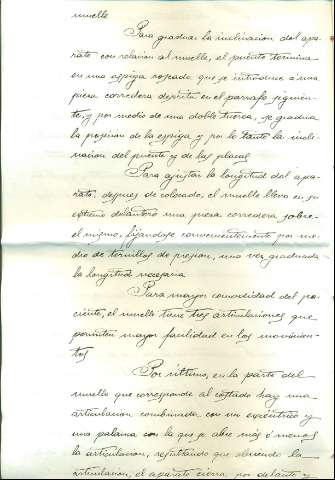 muelle
Para graduar la inclinacion del apa-
rato con relacion al muelle, el puente termina
en una espiga roscada que se introduce á una
pieza corredera descrita en el parrafo siguien-
te, y por medio de una doble tuerca, se gradua
la presion de la espiga y por lo tanto la incli-
nacion del puente y de las placas
Para ajustar la longitud del apa-
rato, despues de colocado, el muelle lleva en su
extremo delantero una pieza corredera sobre
el mismo, fijandose convenientemente por me-
dio de tornillos de presion, una vez graduada
la longitud necesaria
Para mayor comodidad del pa-
ciente, el muelle tiene tres articulaciones que
permiten mayor facilidad en los movimien-
tos
Por último, en la parte del
muelle que corresponde al costado hay una
articulacion combinada con un excéntrico y
una palanca con la que se abre más ó menos
la articulacion, resultando que abriendo la
articulacion, el aparato cierra por delante y